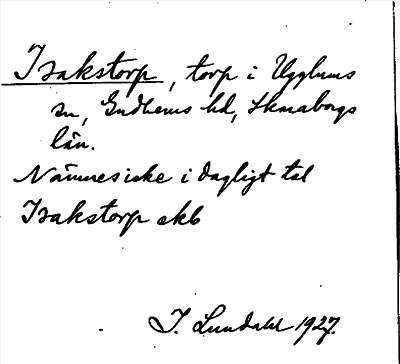 Isakstorp, torp i Ugglums
sn, Gudhems hd, Skaraborgs
län.
Nämnes icke i dagligt tal
Isakstorp skb
I. Lundahl 1927.